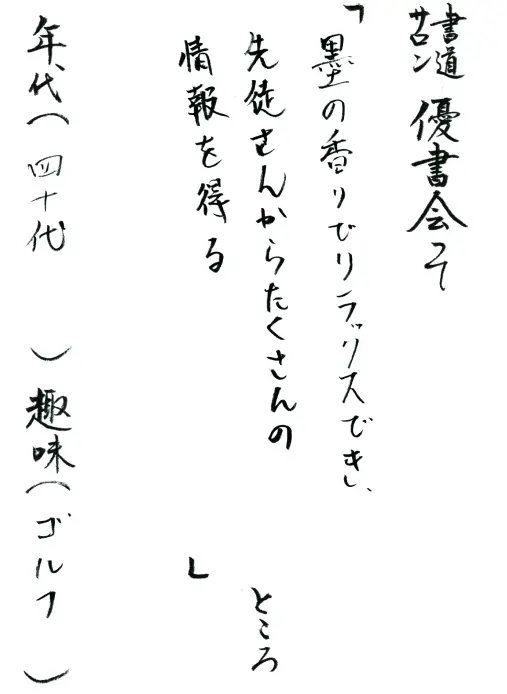 書道サロン 優書会って
「墨の香りでリラックスでき、
先徒さんからたくさんの
情報を得る」
ところ
年代(四十代)趣味(ゴルフ)